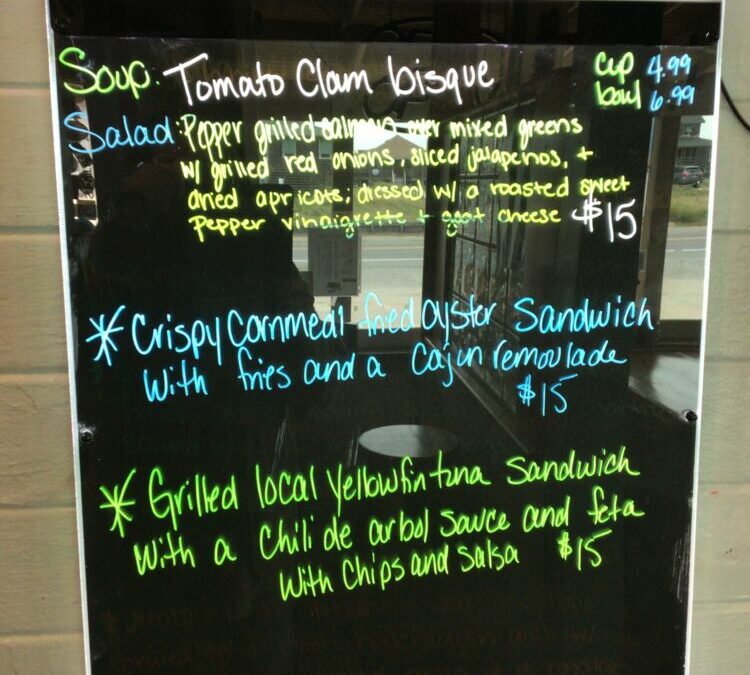 Soup: Tomato Clam bisque
cup 4.99
bowl 6.99
Salad: Pepper grilled salmon over mixed greens
w/ grilled red onions, sliced jalapenos, +
dried apricots; dressed w/ a roasted sweet
Pepper vinaigrette + goat cheese $15
* Crispy Cornmeal fried oyster Sandwich
with fries and a Cajun remoulade
$15
* Grilled local Yellowfin tuna Sandwich
with a Chili de arbol sauce and feta
with Chips and Salsa $15